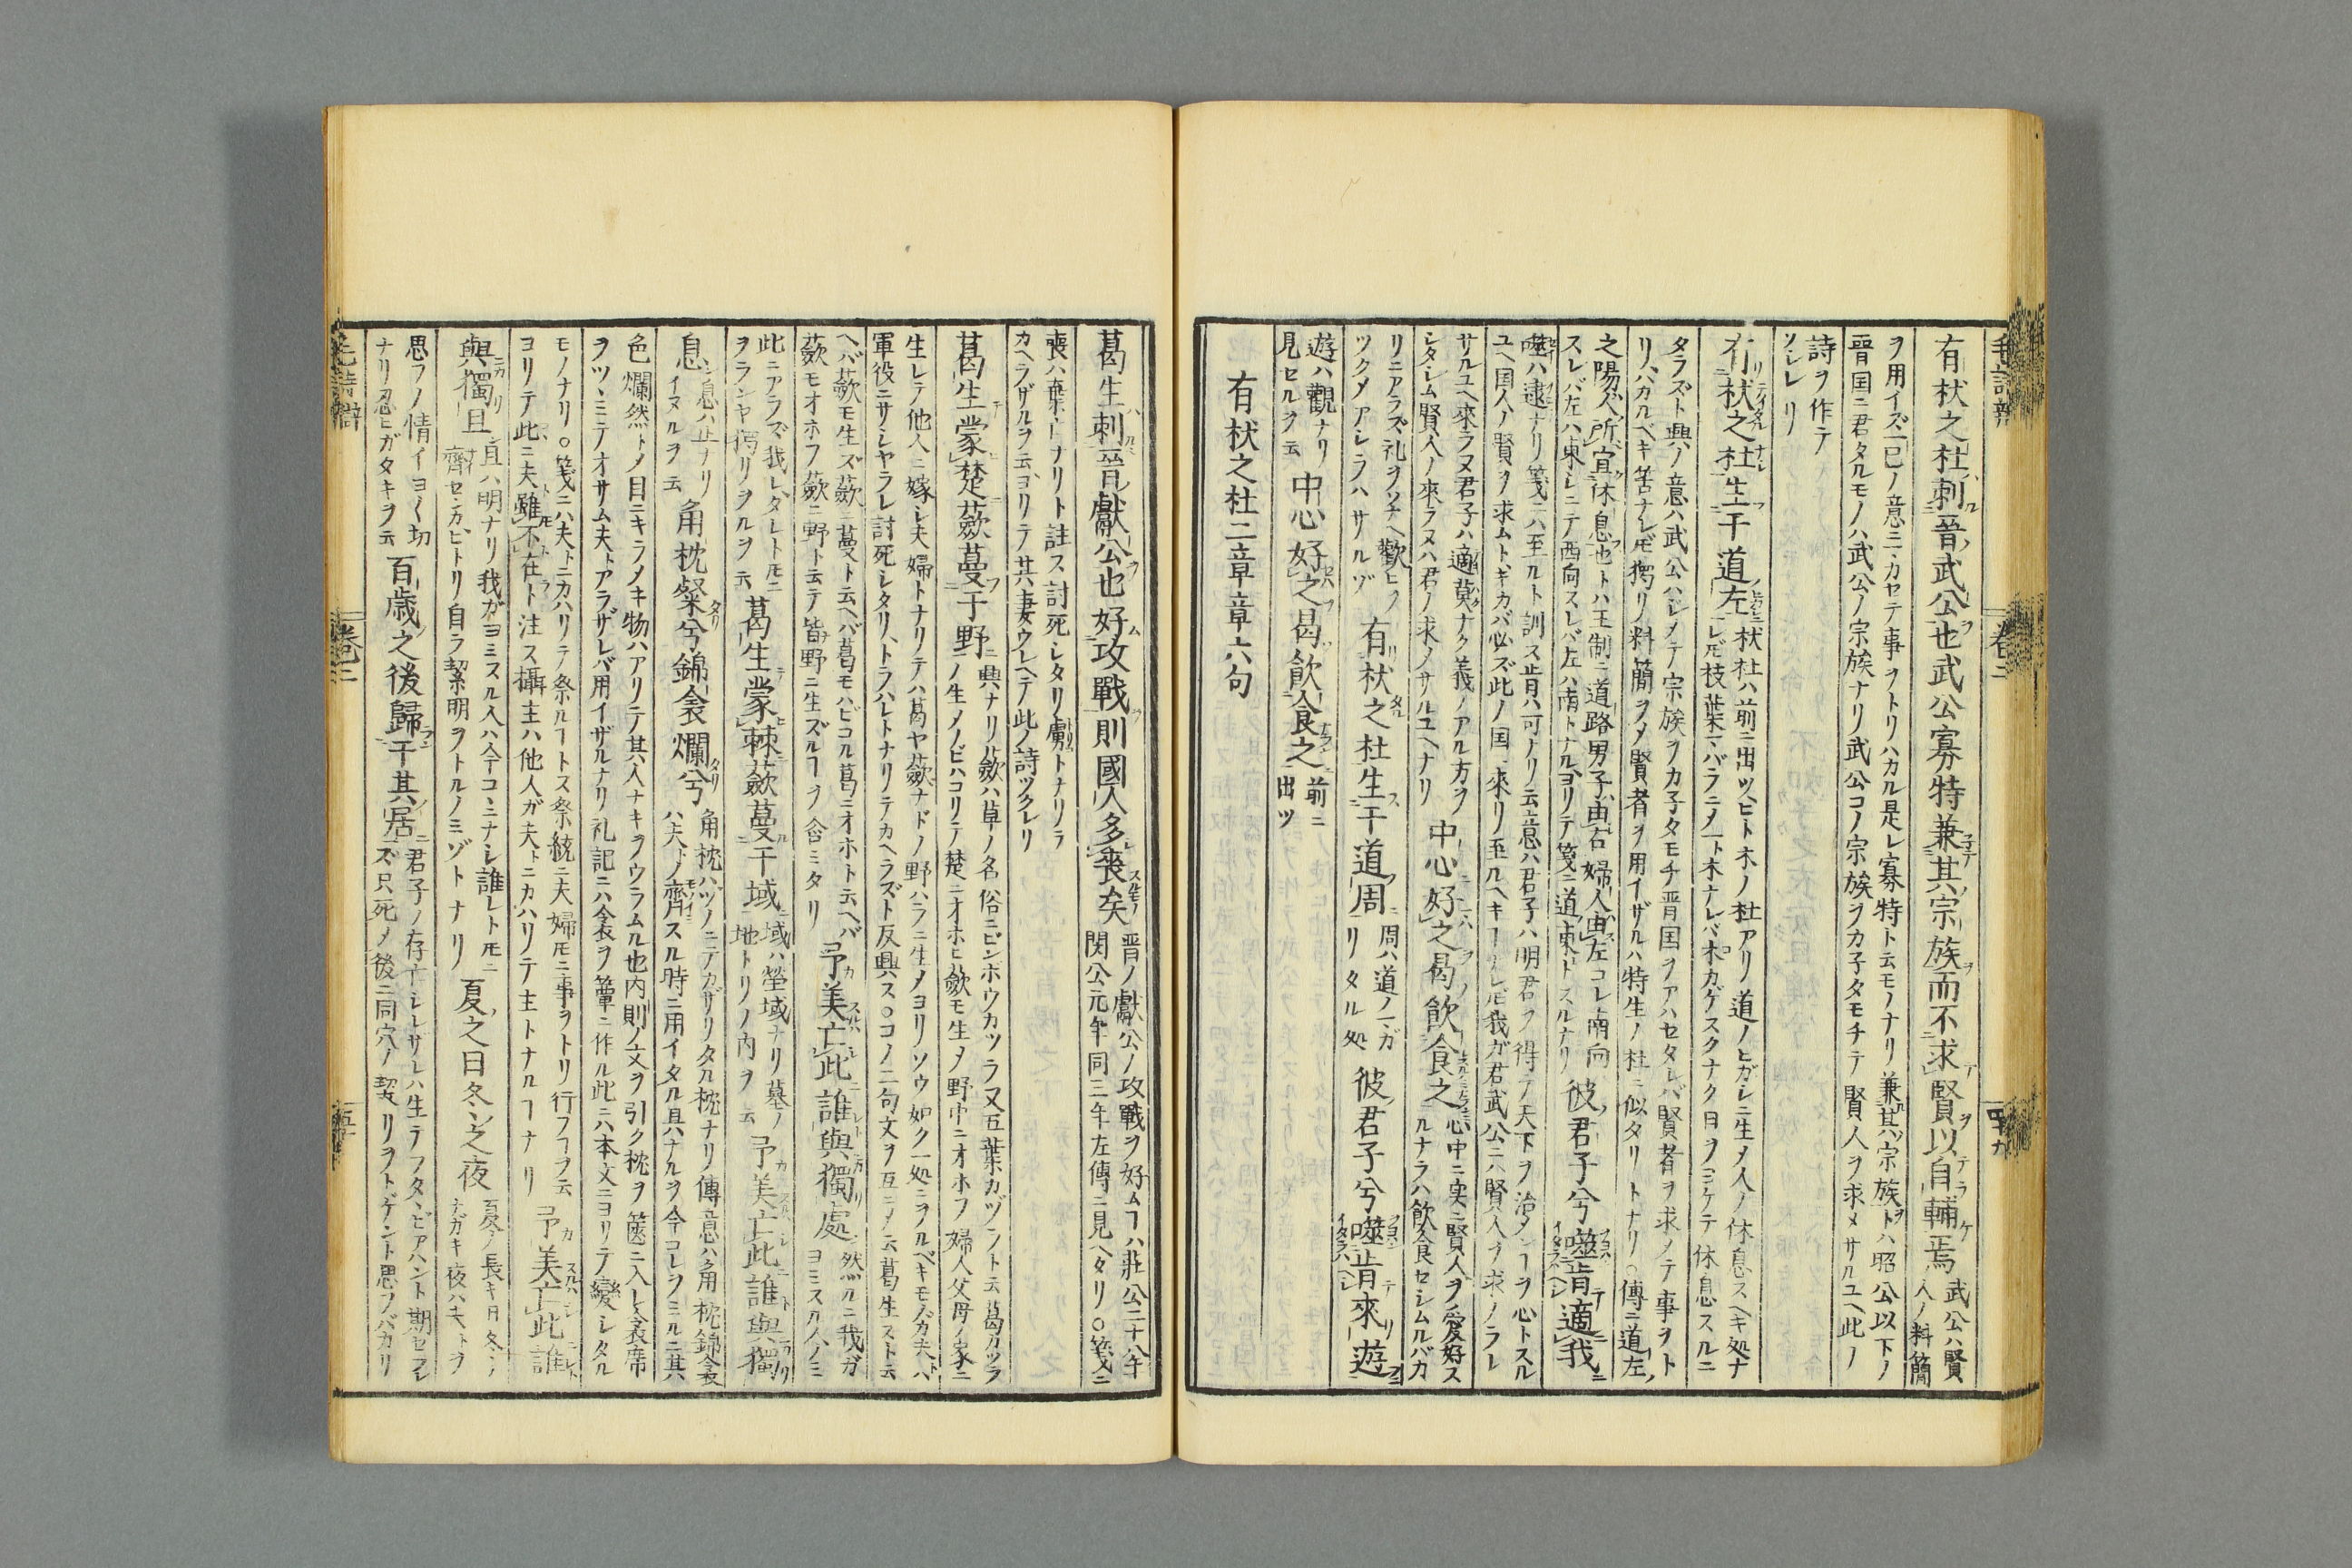 毛詩辨
卷二
有杕之杜刺晉武公也武公寡特兼其宗族而不求賢以自輔焉
武公ハ賢人ノ料簡
ヲ用イズ己ノ意ニマカセテ事ヲトリハカル是レ寡特ト云モノナリ兼其宗族トハ昭公以下ノ
晉国ニ君タルモノハ武公ノ宗族ナリ武公コノ宗族ヲカ子タモチテ賢人ヲ求メサルユヘ此ノ
詩ヲ作テ
ソレリ
有杕之杜生于道左
杕杜ハ前ニ出ツヒト木ノ杜アリ道ノヒガシニ生メ人ノ休息スヘキ処ナ
レ𪜈枝葉マバラニメ一ト木ナレバ木カゲスクナク日ヲヨケテ休息スルニ
タラズト興ノ意ハ武公ハジメテ宗族ヲカ子タモチ晋国ヲアハセタレバ賢者ヲ求メテ事ヲト
リハカルベキ筈ナレ𪜈獨リノ料簡ヲメ賢者ヲ用イザルハ特生ノ杜ニ似タリトナリ○傳ニ道左
之陽人所宜休息也トハ王制ニ道路男子由右婦人由左コレ南向
スレバ左ハ東レニテ西向スレバ左ハ南トナルヨリテ箋ニ道東トスルナリ
彼君子兮噬肯適我
噬ハ逮ナリ箋ニハ至ルト訓ス肯ハ可ナリ云意ハ君子ハ明君ヲ得テ天下ヲ治メンヿヲ心トスル
ユヘ国人ノ賢ヲ求ムトキカバ必ズ此ノ国ニ來リ至ルヘキ
我ガ君武公ニハ賢人ヲ求メラレ
サルユヘ來ラヌ君子ハ適莫ナク義ノアル方ヲ
シタシム賢人ノ來ラヌハ君ノ求メサルユヘナリ
中心好之曷飲食之
心中ニ実ニ賢人ヲ愛好ス
ルナラハ飲食セシムルバカ
リニアラズ礼ヲソナヘ歡ヒヲ
ツクメアレラハサルゾ
有杕之杜生于道周
周ハ道ノマガ
リタル処
彼君子兮噬肯來遊
遊ハ觀ナリ
見セルヲ云
中心好之曷飲食之
前ニ
出ツ
有杕之杜二章章六句
葛生刺晉獻公也好攻戰則國人多喪矣
晋ノ獻公ノ攻戰ヲ好ムヿハ莊公二十八年
閔公元年同三年左傳ニ見ヘタリ○箋ニ
喪ハ棄亡ナリト註ス討死シタリ虜トナリテ
カヘラザルヲ云ヨリテ其妻ウレヘテ此ノ詩ツクレリ
葛生蒙楚蘞蔓于野
興ナリ蘞ハ草ノ名俗ニビンボウカツラ又五葉カヅラト云葛カツラ
ノ生メノビハコリテ楚ニオホヒ蘞モ生メ野中ニオホフ婦人父母ノ家ニ
生レテ他人ニ嫁シ夫婦トナリテハ葛ヤ蘞ナドノ野ハラニ生メヨリソウ如ク一処ニヲルベキモノガ夫ハ
軍役ニサシヤラレ討死シタリトラハレトナリテカヘラズト反興ス○コノ二句文ヲ互ニメ云葛生スト云
ヘバ蘞モ生ズ蘞ニ蔓ト云ヘバ葛モハビコル葛ニオホト云ヘバ
蘞モオホフ蘞ニ野ト云テ皆野ニ生ズルヿヲ含ミタリ
予美亡此誰與獨處
然ルニ我ガ
ヨミスル人ノミ
此ニアラズ我レタレト𪜈ニ
ヲランヤ獨リヲルヲ云
葛生蒙棘蘞蔓于域
域ハ塋域ナリ墓ノ
地トリノ内ヲ云
予美亡此誰與獨
息
息ハ止ナリ
イヌルヲ云
角枕粲兮錦衾爛兮
角枕ハツノニテカザリタル枕ナリ傳意ハ角枕錦衾
ハ夫ノ齊スル時ニ用イタル具ナルヲ今コレヲミルニ其
色爛然トメ目ニキラメキ物ハアリテ其人ナキヲウラムル也内則ノ文ヲ引ク枕ヲ篋ニ入レ衾席
ヲツヽミテオサム夫トアラザレバ用イザルナリ礼記ニハ衾ヲ簟ニ作ル此ニハ本文ニヨリテ變シタル
モノナリ○箋ニハ夫トニカハリテ祭ルヿトス祭統ニ夫婦𪜈ニ事ヲトリ行フヿヲ云
ヨリテ此ニ夫雖不在ト注ス攝主ハ他人ガ夫トニカハリテ主トナルヿナリ
予美亡此誰
與獨旦
旦ハ明ナリ我ガヨミスル人ハ今コヽニナシ誰レト𪜈ニ
齊セシカヒトリ自ラ絜明ヲトルノミゾトナリ
夏之日冬之夜
夏ノ長キ日冬ノ
ナガキ夜ハ夫トヲ
思フノ情イヨ〱切
ナリ忍ヒガタキヲ云
百歳之後歸于其居
君子ノ存亡シレサレハ生テフタヽビアハント期セラレ
ズ只死ノ後ニ同穴ノ契リヲトゲント思フバカリ
毛詩辯
卷二